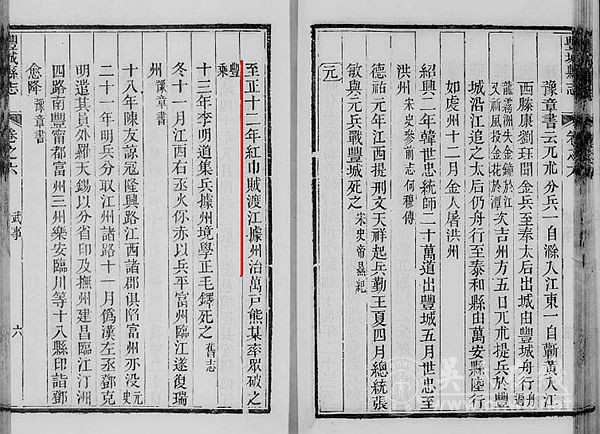 豐城縣志
豫章書云兀朮分兵一自滁入江東一自蘄黃入江
西縣康劉珏聞金兵至奉太后出城由豐城舟行
龍霧洲失金鐘於江
又祠風投金花於潭
次吉州方五日兀朮提兵於豐
城沿江追之太后仍舟行至泰和縣由萬安縣陸行
如虔州十二月金人屠洪州
紹興二年韓世忠統師二十萬道出豐城五月世忠至
洪州 宋史參前志何穆傳
德祐元年江西提刑文天祥起兵勤王夏四月總統張
敏與元兵戰豐城死之 宋史帝㬎紀
元
至正十二年紅巾賊渡江據州治萬戶熊某率眾破之
豐乘
十三年李明道集兵據州境學正毛鐸死之 舊志
冬十一月江西右丞火你赤以兵平富州臨江遂復瑞
州 豫章書
十八年陳友諒寇隆興路江西諸郡俱陷富州亦没 元史
二十一年明兵分取江州諸路十一月僞漢左丞鄧克
明遣其員外羅天錫以分省印及撫州建昌臨江汀洲
四路南豐甯都富州三州樂安臨川等十八縣印詣鄧
愈降 豫章書
豐城縣志
卷之六
武事
六